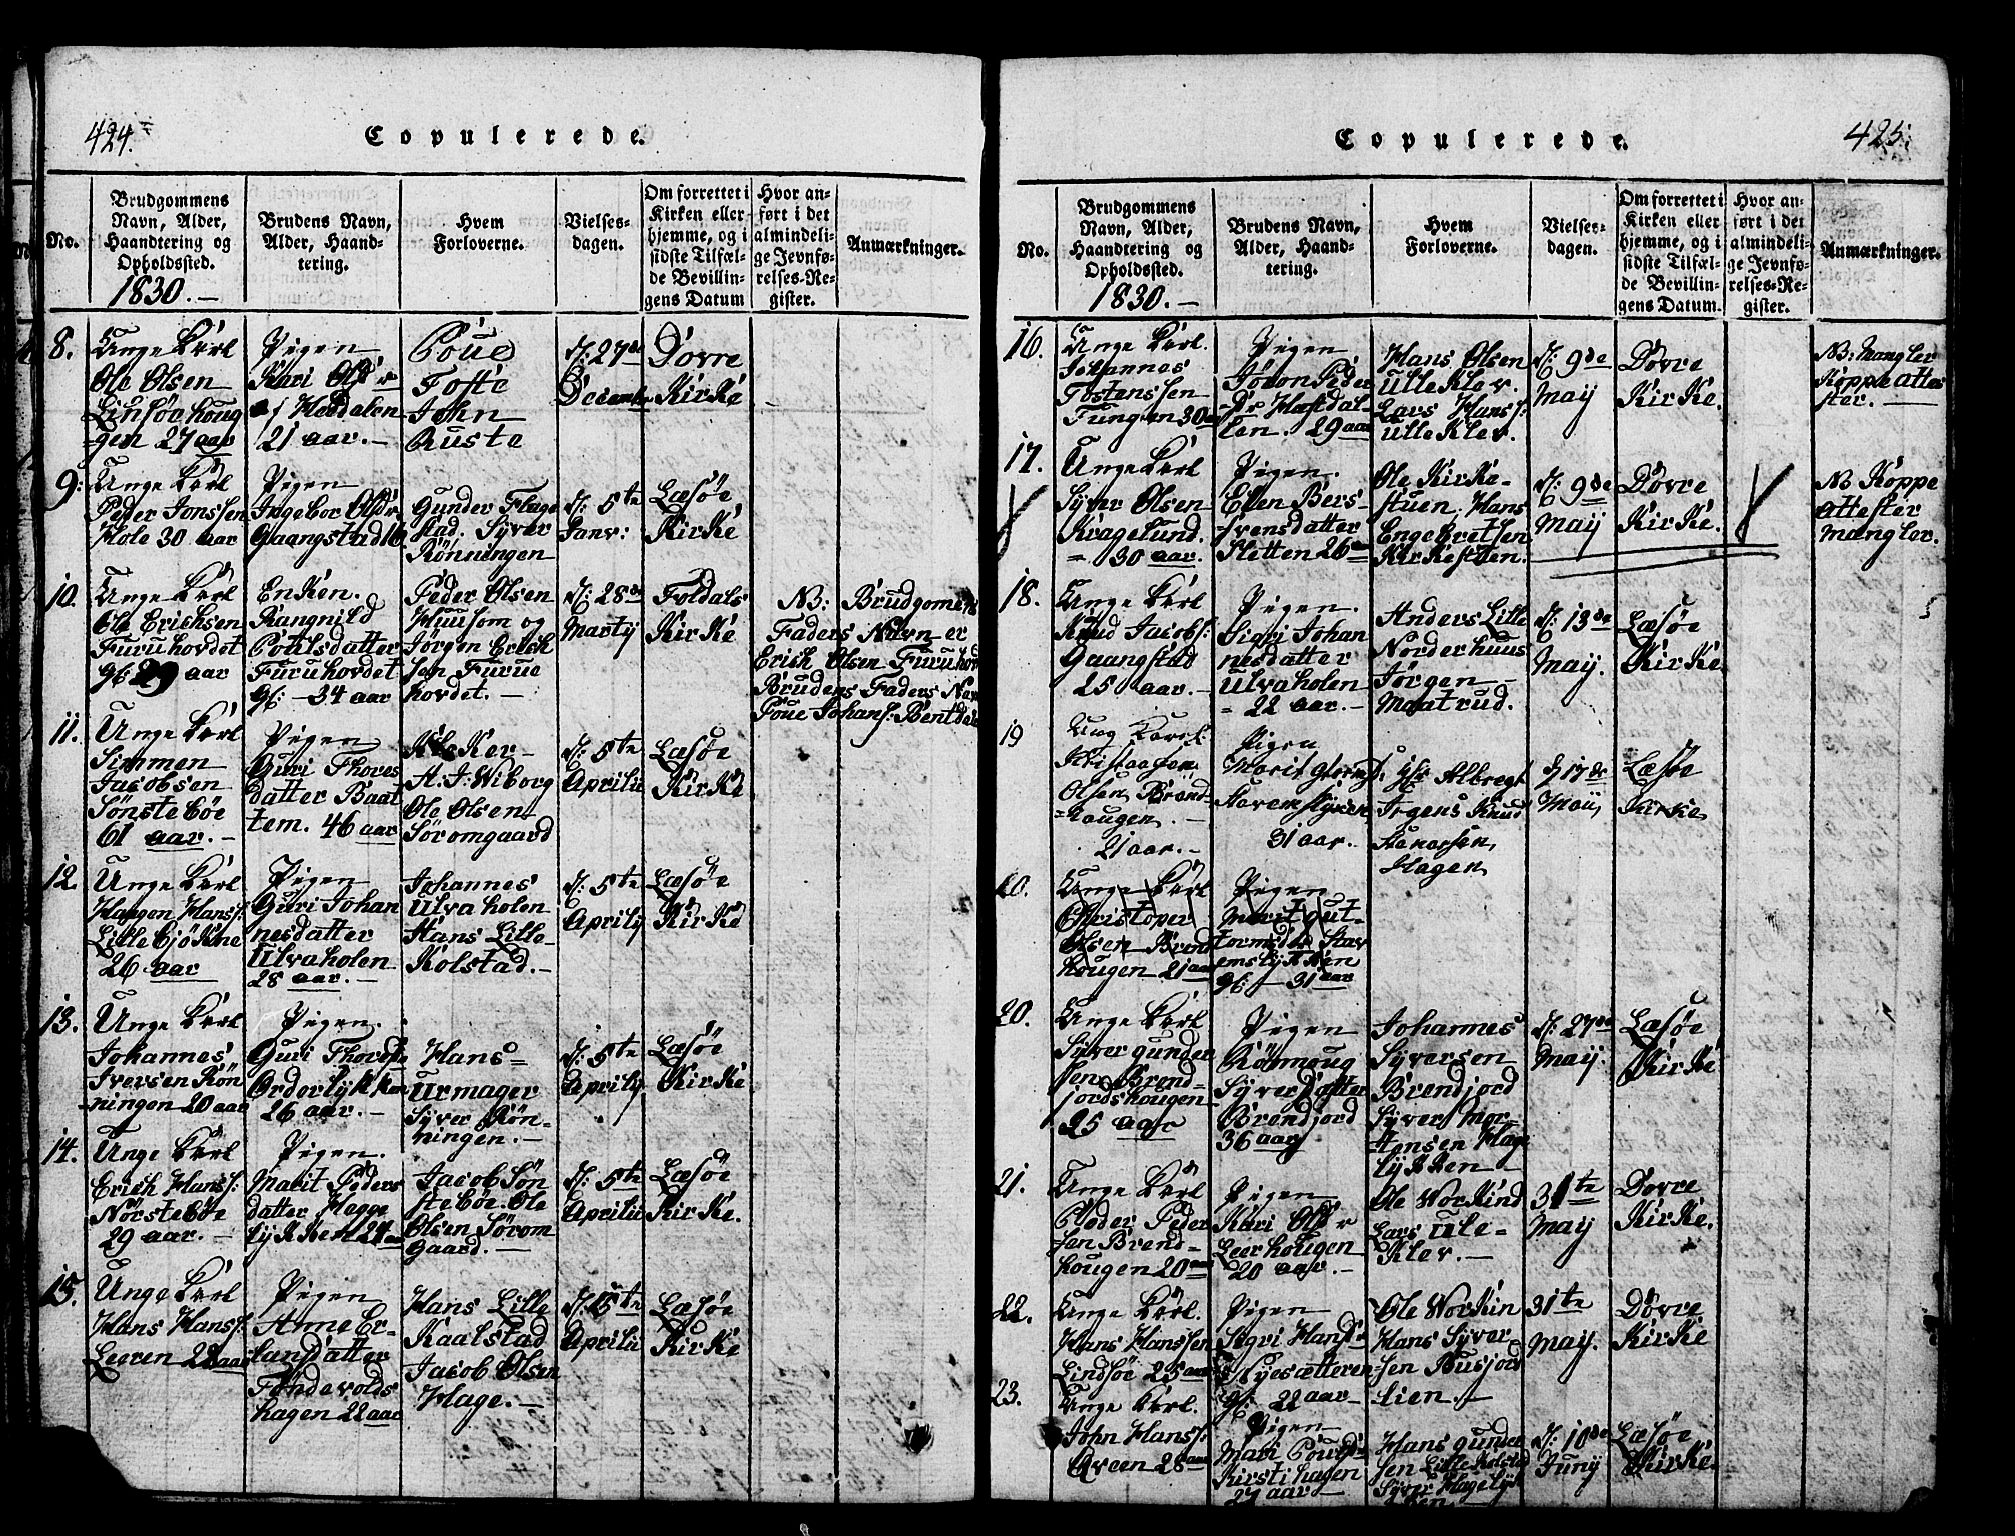 424.
Copulerede.
No.
Brudgommens
Navn, Alder,
Haandtering og
Opholdssted.
1830.-
Brudens Navn,
Alder, Haand-
tering.
Hvem
Forloverne.
Vielses-
dagen.
Om forrettet i
Kirken eller
hjemme, og i
sidste Tilfæl-
de Bevillin-
gens Datum
Hvor an-
ført i det
almindeli-
ge Jevnfø-
relses-Re-
gister.
Anmærkninger.
8.
Unge Karl
Ole Olsen
Linsøe houg
gen 27 aar
Pigen
Kari Olsdr
af Heddalen
21 aar.-
Poue
Tofte
John
Ruste
d: 27de
December
Dovre
Kirke
9:
Unge Karl
Peder Jonssen
Hole 30 aar
Pigen
Ingebor Olsdr
Gaangstad
Gunder Flage
stad. Syver
Rönningen
d: 5te
Janv:
Læsøe
Kirke
10.
Unge Karl
Ole Erichsen
Furuhovdet
gl: 29 aar
Enken.
Rangnild
Poulsdatter
Furuhovdet
gl: - 34 aar
Peder Olsen
Huusom og
Jørgen Erich
sen Furue
hovdet.-
d: 28de
Martij
Foldals
Kirke
NB: Brudgomens
Faders Navn er
Erich Olsen Furuhov
Brudens Faders Nav
Poue Johans: Bentdal
11.
Unge Karl
Simmen
Jacobsen
Sönsteböe
61 aar.-
Pigen
Guri Thores
datter Baat
tem. 46 aar
Kloker-
A. J. Wiborg
Ole Olsen
Söromgaard
d: 5te
Aprilii
Læsøe
Kirke
12.
Unge Karl
Haagen Hans:
Lille bjökne
26 aar
Pigen
Guri Johan
nesdatter
Ulvaholen
28 aar.-
Johannes
Ulvaholen
Hans Lille-
Kolstad.-
d: 5te
Aprilij
Læsøe
Kirke
13.
Unge Karl
Johannes
Iversen Rön
ningen 20 aar
Pigen.
Guri Thorsd
Orderlykken
26 aar.-
Hans
Urmager
Syver Rön-
ningen.-
d: 5te
Aprilij
Læsøe
Kirke
14.
Unge Karl
Erich Hans:
Nörsteböe
29 aar.-
Pigen.
Marit Peders
datter Hagge
lykken 24 aar
Jacob Sön
steböe. Ole
Olsen Sörom
Gaard.-
d: 5te
Aprilii
Læsøe
Kirke.
15.
Unge Karl
Hans Hans:
Leeren 28 aar
Pigen
Anne Er-
landatter
Töndevolds
hagen 22 aar
Hans Lille
Kaalstad
Jacob Olsen
Hage.-
d: 15te
Aprilii
Læsøe
Kirke
425.
Copulerede.
No.
Brudgommens
Navn, Alder,
Haandtering og
Opholdssted.
1830.-
Brudens Navn,
Alder, Haand-
tering.
Hvem
Forloverne.
Vielses-
dagen.
Om forrettet i
Kirken eller
hjemme, og i
sidste Tilfæl-
de Bevillin-
gens Datum.
Hvor an-
ført i det
almindeli-
ge Jevnfø-
relses-Re-
gister.
Anmærkninger.
16.
Unge Karl.
Johannes
Tostenssen
Tungen 30 aar
Pigen
Jöron Peder
dr Hafsdal-
len. 29 aar
Hans Olsen
Ulle Klev.
Lars Hans:
Ulleklev.
d: 9de
Maij
Dovre
Kirke.
NB: Mangler
Koppe attes
ster.-
17.
Unge Karl
Syver Olsen
Kragelund.
30 aar.
Pigen.
Elen Bers-
svensdatter
Sletten 26 aar
Ole Kirke-
stuen, Hans
Engebretsen
Kirkestuen.
d: 9de
Maij
Dovre
Kirke.
N Koppe
attester
mangler.
18.
Unge Karl
Knud Jacobs:
Gaangstad
25 aar.-
Pigen.
Sigri Johan
nesdatter
Ulvaholen
22 aar.-
Anders Lille
Norderhuus
Jörgen-
Maatrud.
d: 13de
Maij.
Læsöe
Kirke
19
Ung Karl:
Kristoffen
Olsen Brend-
hougen.-
21 aar.-
Pigen
Marit
Stavemslykken
31 aar.
Hr Albregt
Jrgens Knud
Hagen
d 17de
Maij
Læsöe
Kirke
20.
Unge Karl
Christoper
Olsen Brend
hougen 21 aar
Pigen
Marit gut-
tormsdtr Stav
emslykken
gl: - 31 aar
20.
Unge Karl
Syver gunder
sen Brend-
jordshougen
25 aar
Pigen
Rönnoug
Syver datter
Brendjord
36 aar
Johannes
Syversen
Brendjord
Syver Mor-
tensen Hage
lykken
d: 27de
Maij.
Læsöe
Kirke
21.
Unge Karl
Peder
sen Brend-
hougen 20 aar
Pigen
Kari Olsdr
Leerhougen
20 aar.-
Ole Workind
Lars Ule-
Klev.-
31te
Maij
Dovre
Kirke.
22.
Unge Karl.
Hans Hanssen
Lindsöe 25 aar
Pigen
Sigri Hansdr
Styesætteren
gl: 22 aar-
Ole Workin
Hans Syver
sen Busjord
lien.-
31te
Maij.
Dövre
Kirke
23.
Unge Karl.
John Hans:
Aveen 28 aar
Pigen
Mari Pouelsd
Kirsti hagen
27 aar-
Hans gunder
sen Lille Kolstad
Syver Hagelyk
ken
d: 10de
Junij
Læsöe
Kirke.